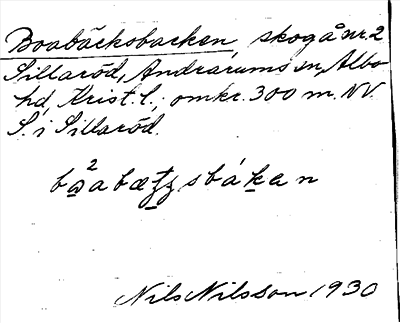 Boabäcksbacken, skog å nr. 2
Sillaröd, Andrarums sn, Albo
hd, Krist. l.; omkr. 300 m. NV.
S. i Sillaröd.
Nils Nilsson 1930